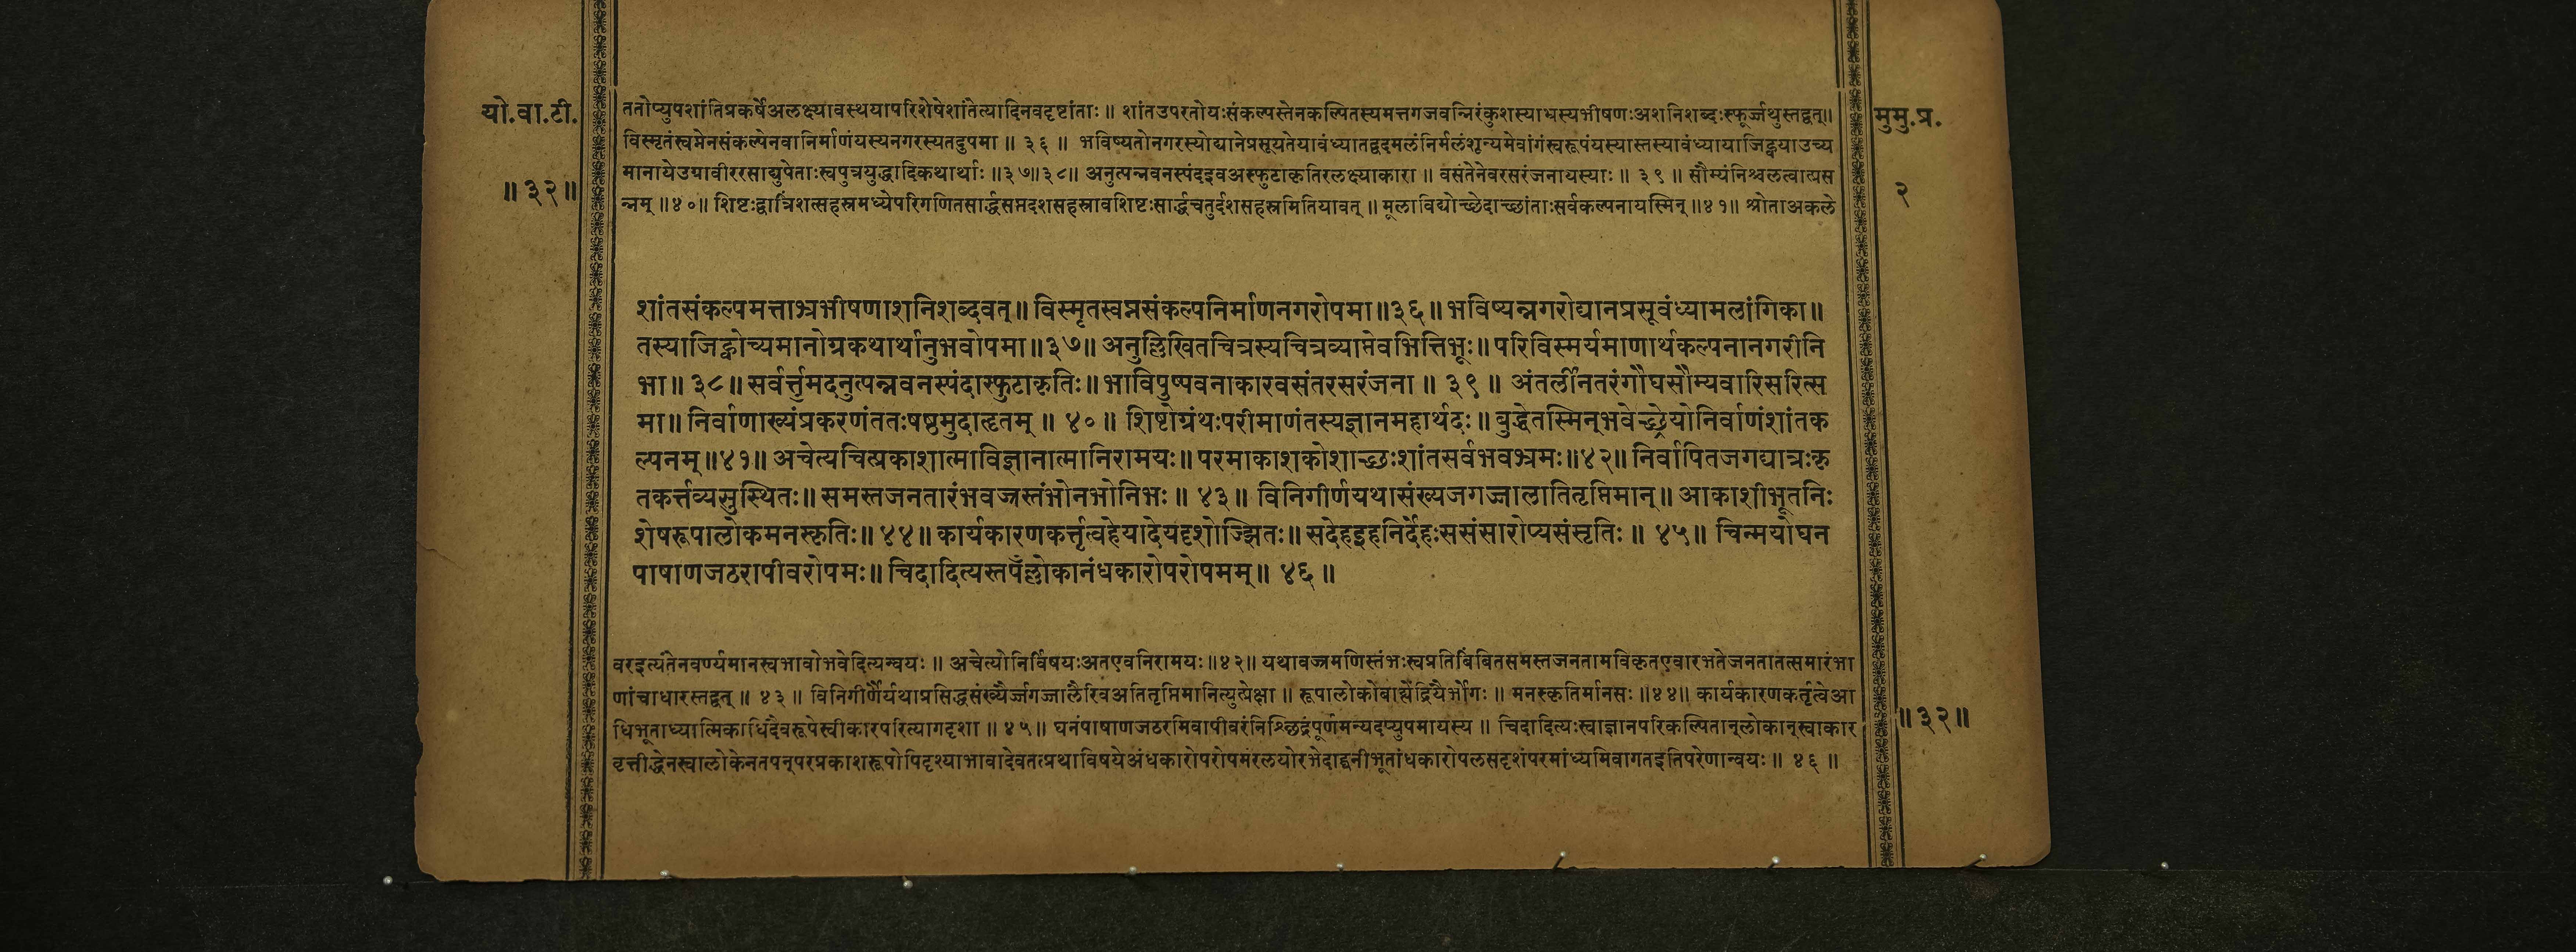 यो.वा.टी.
॥३२॥
ततोप्युपशांतिप्रकर्षेअलक्ष्यावस्थयापरिशेषेशांतेत्यादिनवदृष्टांताः ॥ शांतउपरतोयःसंकल्पस्तेनकल्पितस्यमत्तगजवन्निरंकुशस्याभ्रस्यभीषणःअशनिशब्दःस्फूर्ज्जथुस्तद्वत्॥
विस्मृतंस्वप्नेनसंकल्पेनवानिर्माणंयस्यनगरस्यतदुपमा ॥ ३६ ॥ भविष्यतोनगरस्योद्यानेप्रसूयतेयावंध्यातद्वदमलंनिर्मलंशून्यमेवांगंस्वरूपंयस्यास्तस्यावंध्यायाजिह्वयाउच्य
मानायेउग्रावीररसाद्युपेताःस्वपुत्रयुद्धादिकथार्थाः ॥३७॥३८॥ अनुत्पन्नवनस्पंदइवअस्फुटाकृतिरलक्ष्याकारा ॥ वसंतेनेवरसरंजनायस्याः ॥ ३९ ॥ सौम्यंनिश्चलत्वात्प्रस
न्नम् ॥४०॥ शिष्टःद्वात्रिंशत्सहस्रमध्येपरिगणितसार्द्धसप्तदशसहस्रावशिष्टःसार्द्धचतुर्दशसहस्रमितियावत् ॥ मूलाविद्योच्छेदाच्छांताःसर्वकल्पनायस्मिन् ॥४१॥ श्रोताअकले
मुमु.प्र.
२
शांतसंकल्पमत्ताभ्रभीषणाशनिशब्दवत्॥ विस्मृतस्वप्नसंकल्पनिर्माणनगरोपमा॥३६॥ भविष्यन्नगरोद्यानप्रसूवंध्यामलांगिका॥
तस्याजिह्वोच्यमानोग्रकथार्थानुभवोपमा॥३७॥ अनुल्लिखितचित्रस्यचित्रव्याप्तेवभित्तिभूः॥ परिविस्मर्यमाणार्थकल्पनानगरीनि
भा॥ ३८॥ सर्वर्त्तुमदनुत्पन्नवनस्पंदास्फुटाकृतिः॥ भाविपुष्पवनाकारवसंतरसरंजना ॥ ३९ ॥ अंतर्लीनतरंगौघसौम्यवारिसरित्स
मा॥ निर्वाणाख्यंप्रकरणंततःषष्ठमुदाहृतम् ॥ ४० ॥ शिष्टोग्रंथःपरीमाणंतस्यज्ञानमहार्थदः॥ बुद्धेतस्मिन्भवेच्छ्रेयोनिर्वाणंशांतक
ल्पनम्॥४१॥ अचेत्यचित्प्रकाशात्माविज्ञानात्मानिरामयः॥ परमाकाशकोशाच्छःशांतसर्वभवभ्रमः॥४२॥ निर्वापितजगद्यात्रःकृ
तकर्त्तव्यसुस्थितः॥ समस्तजनतारंभवज्रस्तंभोनभोनिभः ॥ ४३॥ विनिगीर्णयथासंख्यजगज्जालातितृप्तिमान्॥ आकाशीभूतनिः
शेषरूपालोकमनस्कृतिः॥ ४४॥ कार्यकारणकर्त्तृत्वहेयादेयदृशोज्झितः॥ सदेहइहनिर्देहःससंसारोप्यसंसृतिः ॥ ४५॥ चिन्मयोघन
पाषाणजठरापीवरोपमः॥ चिदादित्यस्तपँल्लोकानंधकारोपरोपमम्॥ ४६ ॥
वरइत्यंतेनवर्ण्यमानस्वभावोभवेदित्यन्वयः ॥ अचेत्योनिर्विषयःअतएवनिरामयः॥४२॥ यथावज्रमणिस्तंभःस्वप्रतिबिंबितसमस्तजनतामविकृतएवारभतेजनतातत्समारंभा
णांचाधारस्तद्वत् ॥ ४३ ॥ विनिगीर्णैर्यथाप्रसिद्धसंख्यैर्ज्जगज्जालैरिवअतितृप्तिमानित्युत्प्रेक्षा ॥ रूपालोकोबाह्येंद्रियैर्भोगः ॥ मनस्कृतिर्मानसः ॥४४॥ कार्यकारणकर्तृत्वेआ
धिभूताध्यात्मिकाधिदैवरूपेस्वीकारपरित्यागदृशा ॥ ४५॥ घनंपाषाणजठरमिवापीवरंनिश्छिद्रंपूर्णमन्यदप्युपमायस्य ॥ चिदादित्यःस्वाज्ञानपरिकल्पितान्लोकान्स्वाकार
वृत्तीद्धेनस्वालोकेनतपन्परप्रकाशरूपोपिदृश्याभावादेवतत्प्रथाविषयेअंधकारोपरोपमंरलयोरभेदाद्घनीभूतांधकारोपलसदृशंपरमांध्यमिवागतइतिपरेणान्वयः ॥ ४६ ॥
॥३२॥